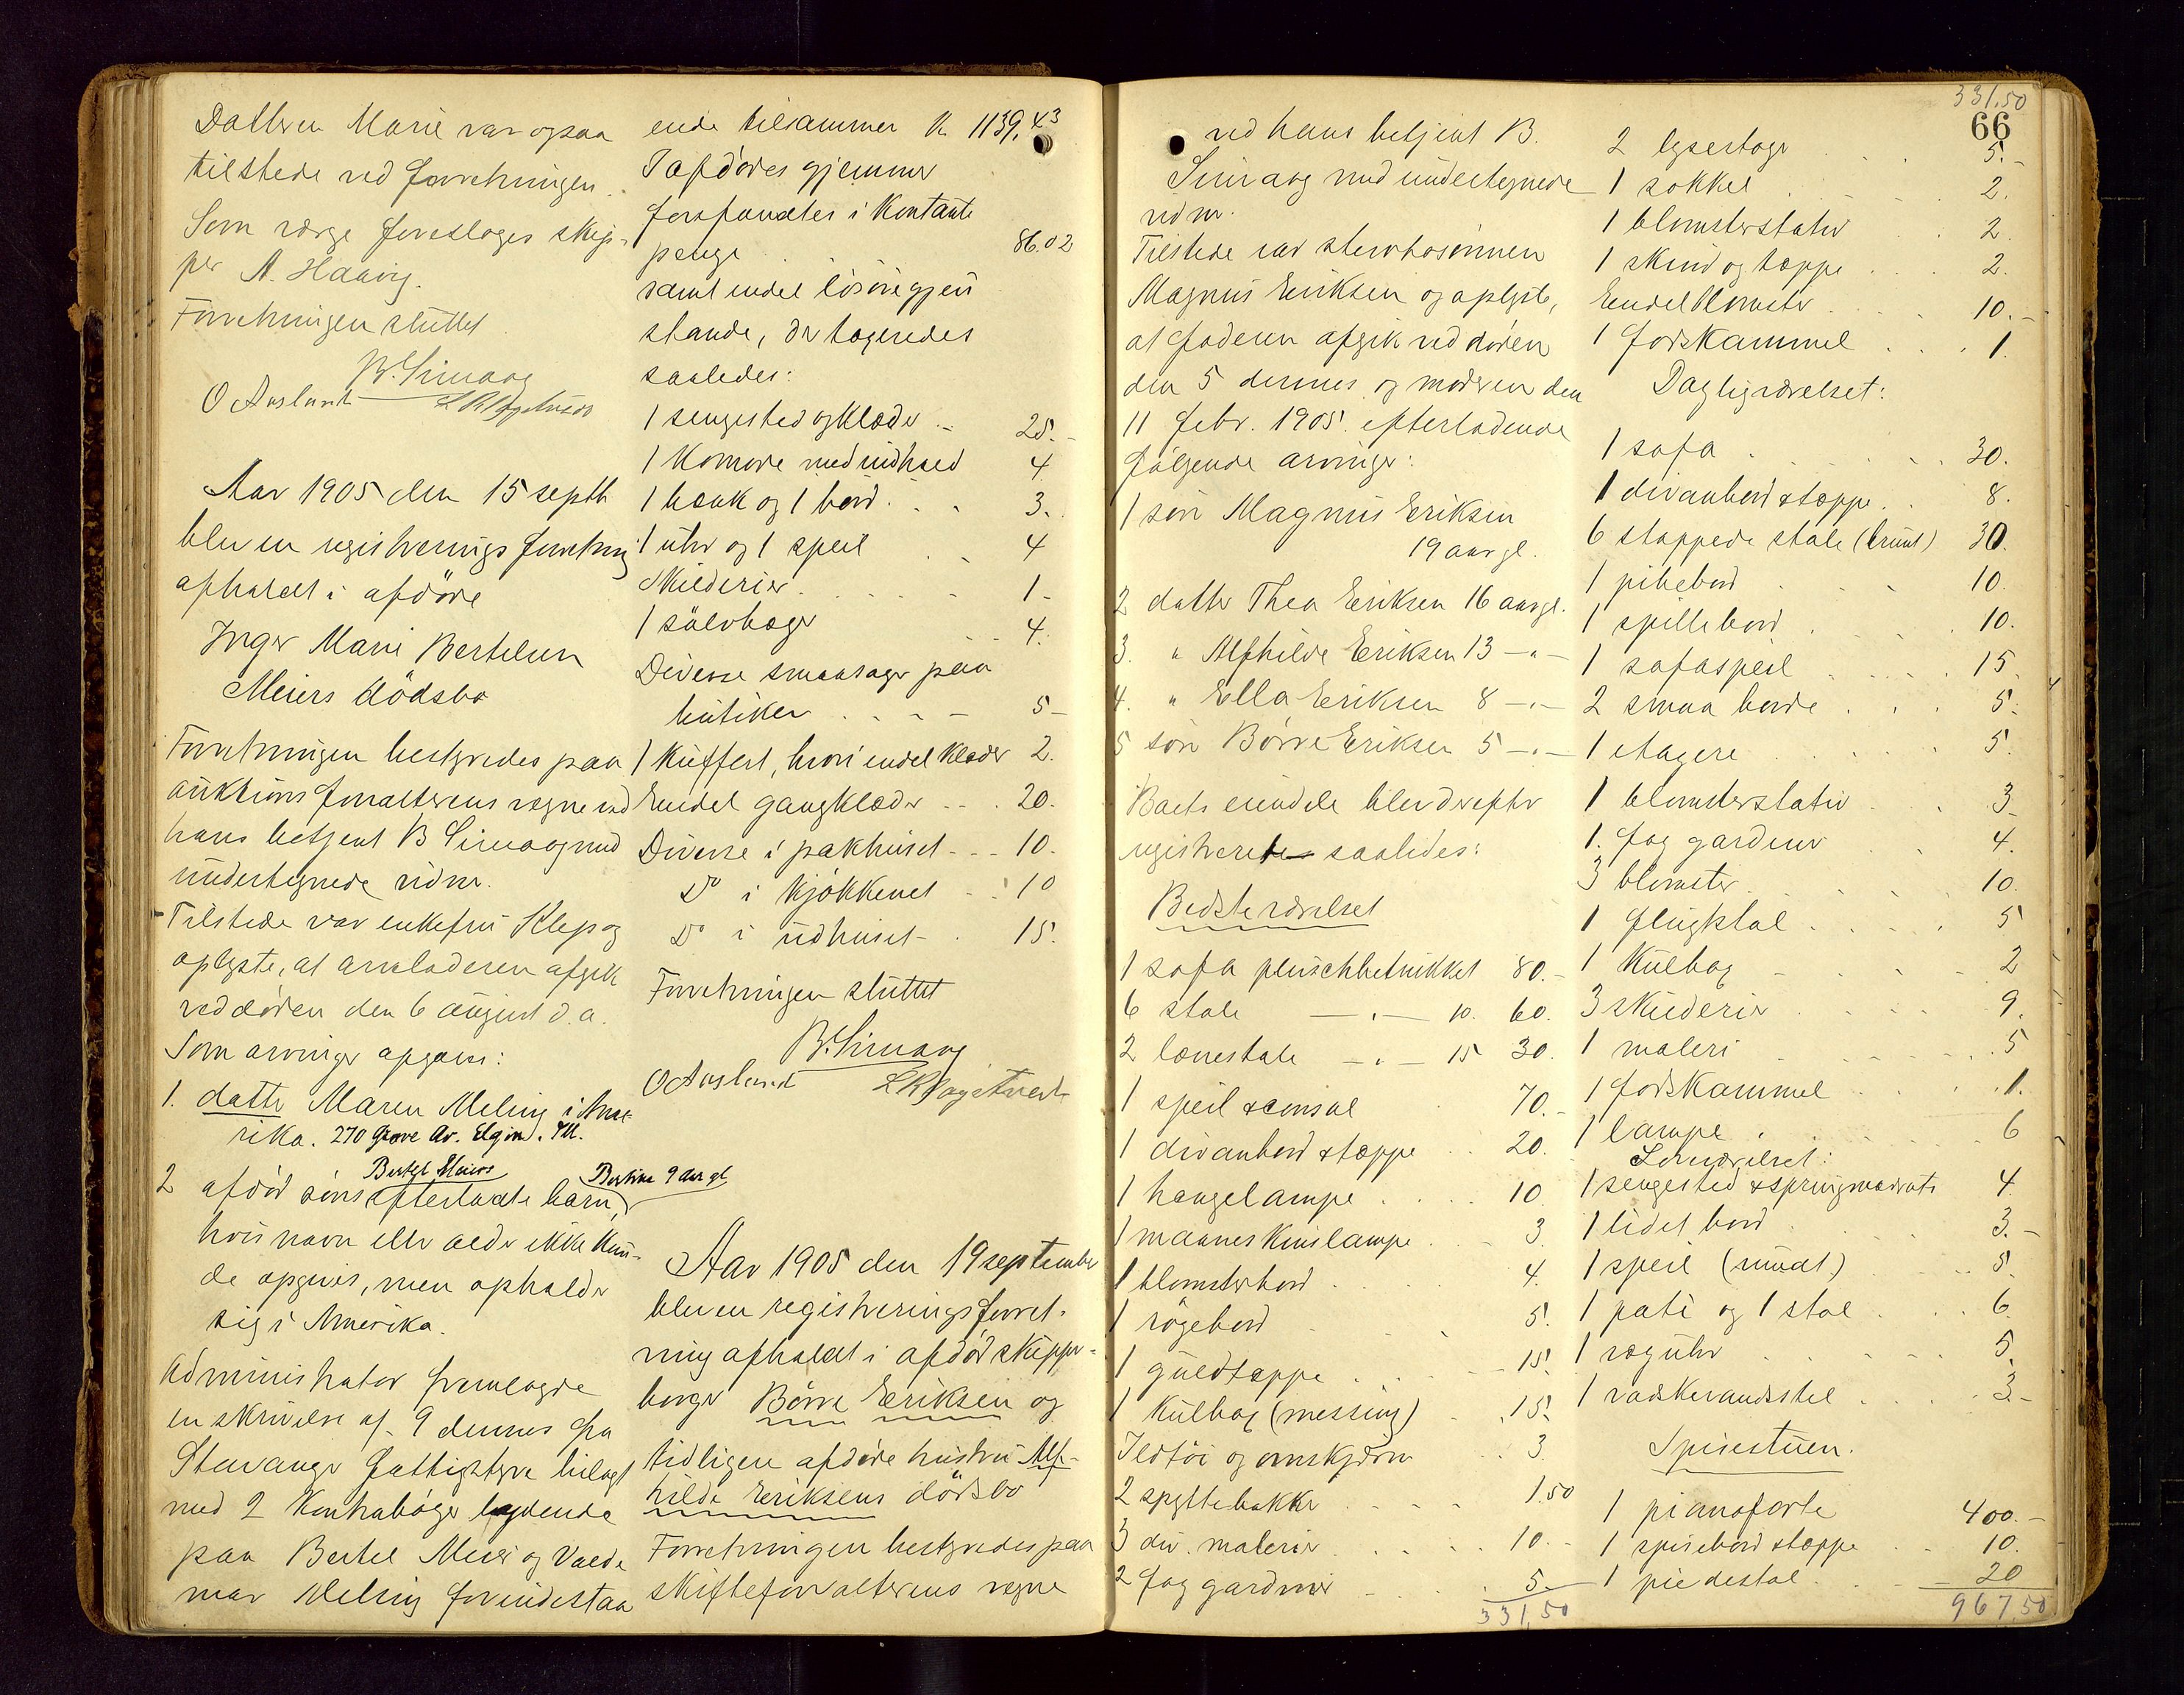 Datteren Marie var ogsaa
tilstede ved forretningen.
Som værge foresloges skip-
per A. Haavig.
Forretningen sluttet
B. Simaag
O Aasland
Aar 1905 den 15 septb
blev en registreringsforretning
afholdt i afdöde
Inger Marie Bertelsen
Meiers dödsbo
Forretningen bestyredes paa
auktionsforvalterens vegne ved
hans betjent B Simaag med
undertegnede vidner.
Tilstede var enkefru Klep og
oplyste, at arveladeren afgik
ved döden den 6 august d.a.
Som arvinger opgaves:
1. datter Maren Meling i Ame-
rika. 270 Grove Av. Elgin. Ill.
2 afdöd söns Bertel Meiers efterladte barn, Bertine 9 aar gl
hvis navn eller alder ikke kun-
de opgives, men opholder
sig i Amerika.
Administrator fremlagde
en skrivelse af 9 dennes fra
Stavanger fattigstyre bilagt
med 2 kontrabøger lydende
paa Bertel Meier og Valde
mar Meling forindestaa
ende tilsammen k. 1139,43
I afdödes gjemmer
forefandtes i kontante
penge 86.02
samt endel lösöregjen
stande, der taxeredes
saaledes:
1 sengested og klæder 25.-
1 komode med indhold 4
1 bænk og 1 bord 3.
1 uhr og 1 speil 4
Skilderier 1-
1 sölvbæger 4.
Diverse smaasager paa
butiken 5-
1 kuffert, hvori endel klæder 2.
Endel gangklæder 20.
Diverse i pakhuset 10.
Do i kjökkenet 10
Do i udhuset 15.
Forretningen sluttet
B. Simaag
O Aasland
Aar 1905 den 19 september
blev en registreringsforret-
ning afholdt i afdöd skipper-
borger Börre Eriksen og
tidligere afdöde hustru Alf-
hilde Eriksens dödsbo
Forretningen bestyredes paa
skifteforvalterens vegne
ved hans betjent B.
Simaag med undertegnede
vidner.
Tilstede var stervbosönnen
Magnus Eriksen og oplyste,
at faderen afgik ved döden
den 5 dennes og moderen den
11 febr. 1905. efterladende
fölgende arvinger:
1 sön Magnus Eriksen
19 aar gl.
2 datter Thea Eriksen 16 aar gl.
3. " Alfhilde Eriksen 13 -"-
4. " Ella Eriksen 8 -"-
5 sön Börre Eriksen 5 -"-
Boets eiendele blev derefter
registreret saaledes:
Bedsteværelset
1 sofa pluschbetrukket 80.-
6 stole -"- 10. 60.
2 lænestole -"- 15 30.
1 speil & consol 70.-
1 divanbord & tæppe 20.
1 hængelampe 10.
1 maaneskinslampe 3.
1 blomsterbord 4.
1 rögebord 5.
1 gulvtæppe 15.
1 kulbox (messing) 15.
Ildtöi og omskjærm 3.
2 spyttebakker 1.50
3 div. malerier 10.-
2 fag gardiner 5.
331,50
331,50
66
2 lysestager 5.-
1 sokkel 2.
1 blomsterstativ 2
1 skind og tæppe 2.
Eendel blomster 10.-
1 fodskammel 1.
Dagligværelset:
1 sofa 30.
1 divanbord & tæppe 8.
6 stoppede stole (brunt) 30.
1 pibebord 10.
1 spillebord 10.
1 sofaspeil 15.
2 smaa borde 5.
1 etagere 5.
1 blomsterstativ 3.
1. fag gardiner 4.
3 blomster 10.
1 flugtstol 5
1 kulbox 2
3 skilderier 9.
1 maleri 5
1 fodskammel 1.
1 lampe 6
Soveværelset:
1 sengested & springmadrats 4.
1 lidet bord 3.-
1 speil (rundt) 5.
1 pute og 1 stol 6.
1 væguhr 5.
1 vaskevandsstel 3.-
Spisestuen.
1 pianoforte 400.-
1 spisebord & tæppe 10.
1 piedestal 20
967,50